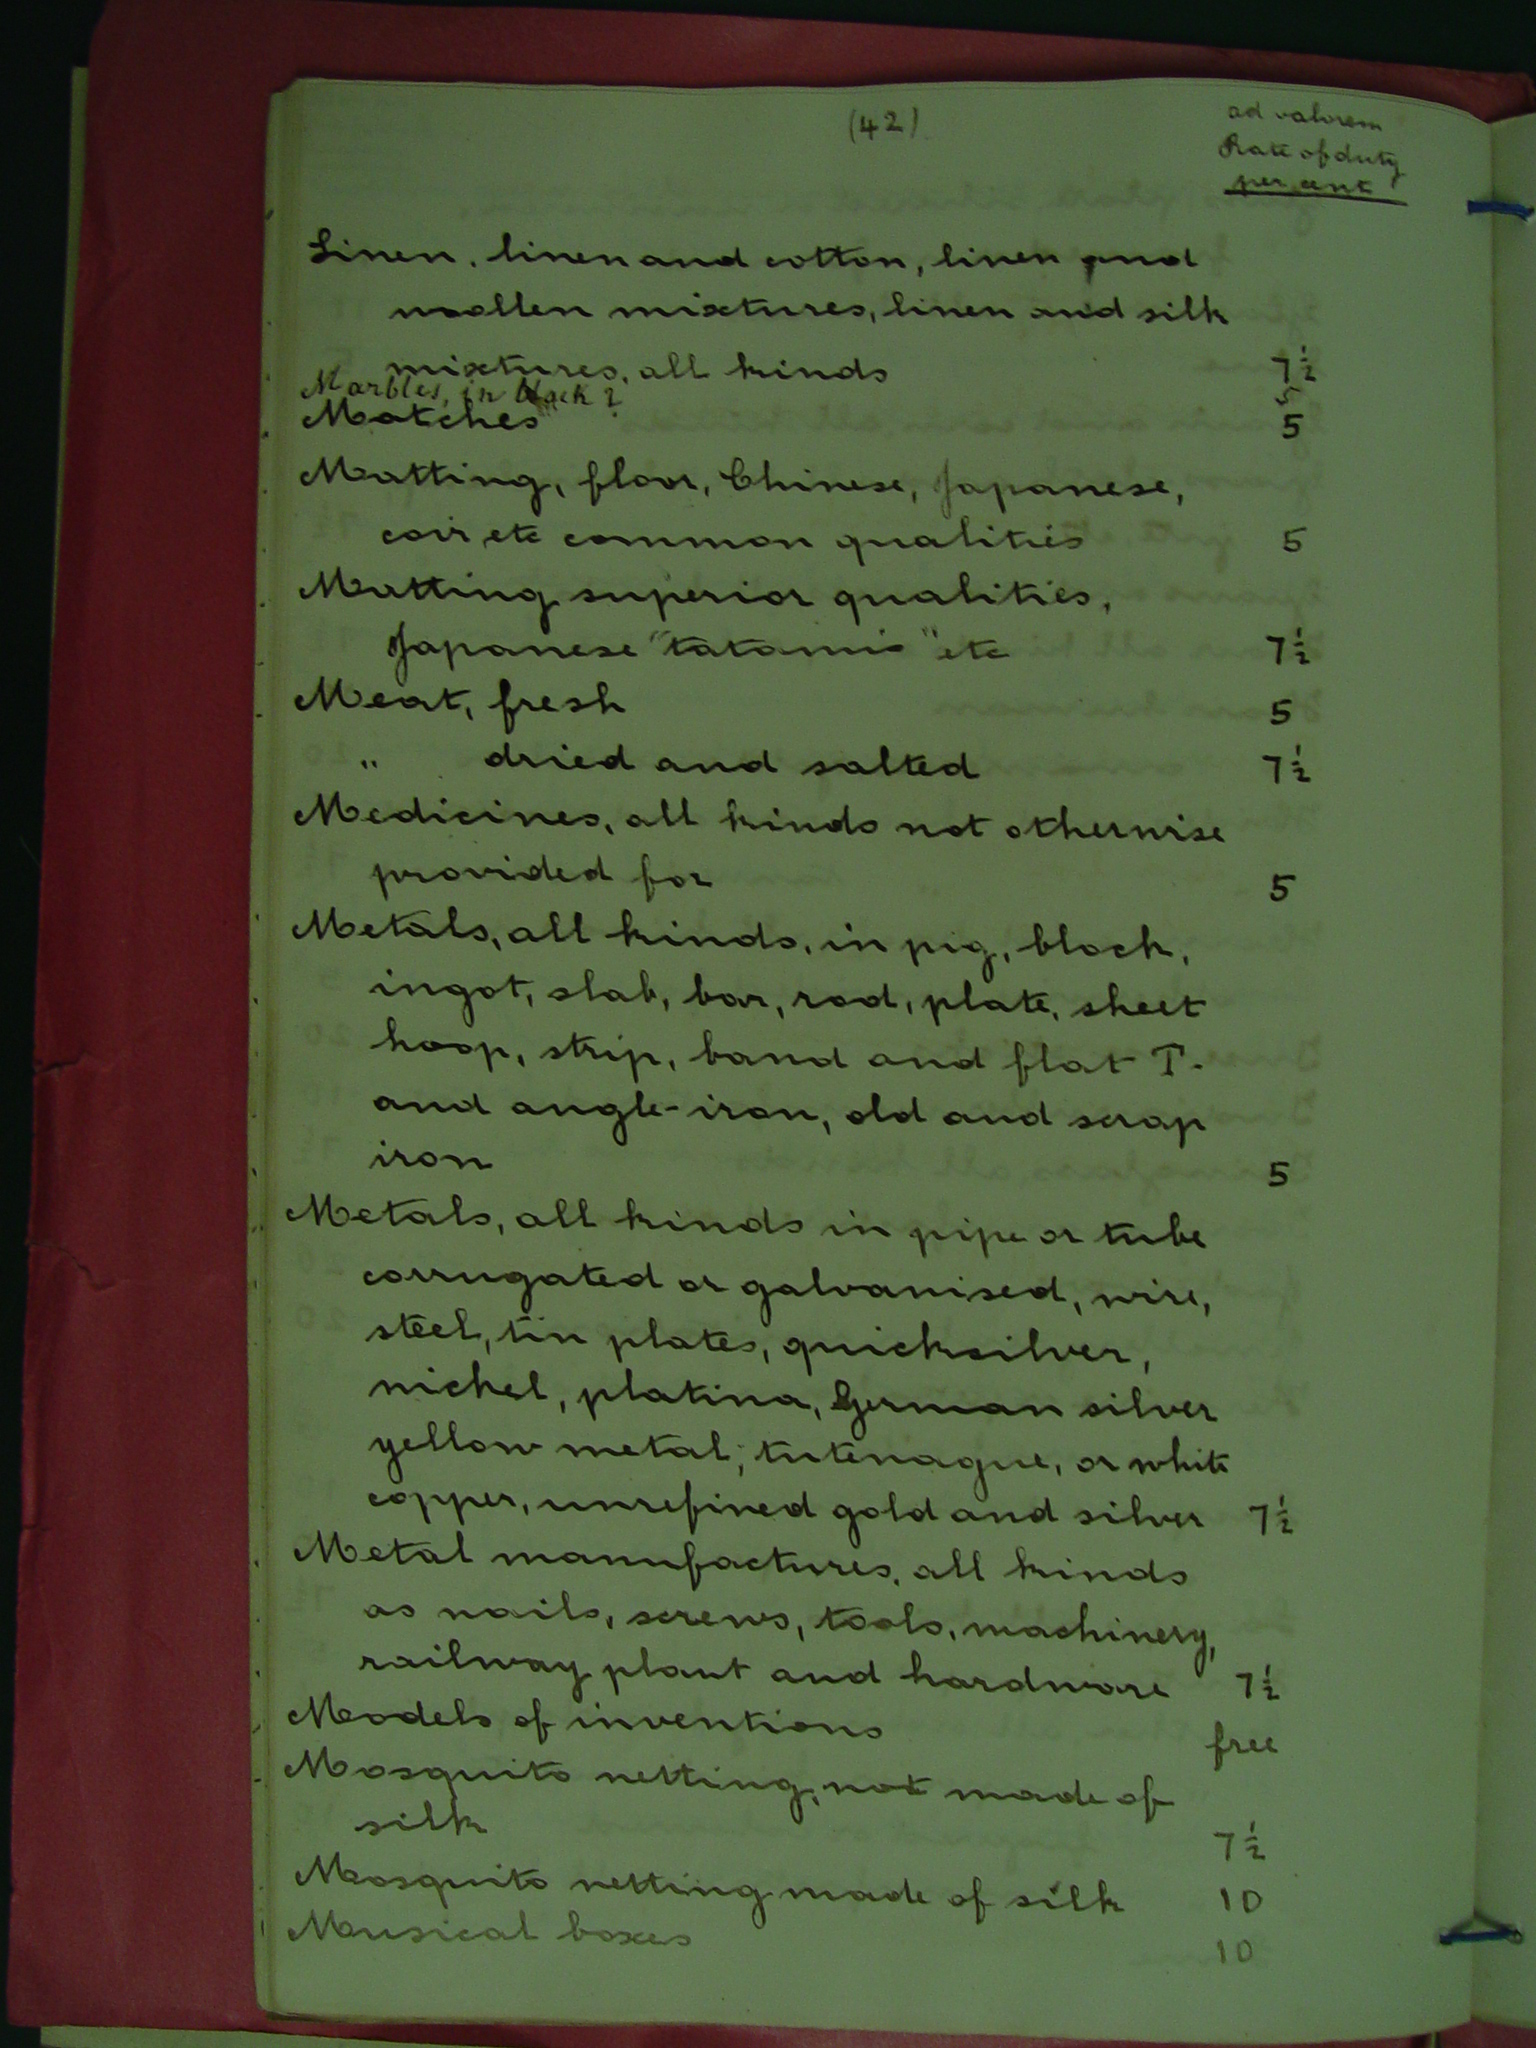 (42)
ad valorem
Rate of duty
per cent
Linen, linen and cotton, linen and
woollen mixtures, linen and silk
mixtures, all kinds 7½
Marbles, in block ? 5
Matches 5
Matting, floor, Chinese, Japanese,
coir etc common qualities 5
Matting superior qualities,
Japanese "tatamis" etc 7½
Meat, fresh 5
" dried and salted 7½
Medicines, all kinds not otherwise
provided for 5
Metals, all kinds, in pig, block,
ingot, slab, bar, rod, plate, sheet
hoop, strip, band and flat T.
and angle-iron, old and scrap
iron 5
Metals, all kinds in pipe or tube
corrugated or galvanised, wire,
steel, tin plates, quicksilver,
nickel, platina, German silver
yellow metal, tutenague, or white
copper, unrefined gold and silver 7½
Metal manufactures, all kinds
as nails, screws, tools, machinery,
railway plant and hardware 7½
Models of inventions free
Mosquito netting, not made of
silk 7½
Mosquito netting made of silk 10
Musical boxes 10